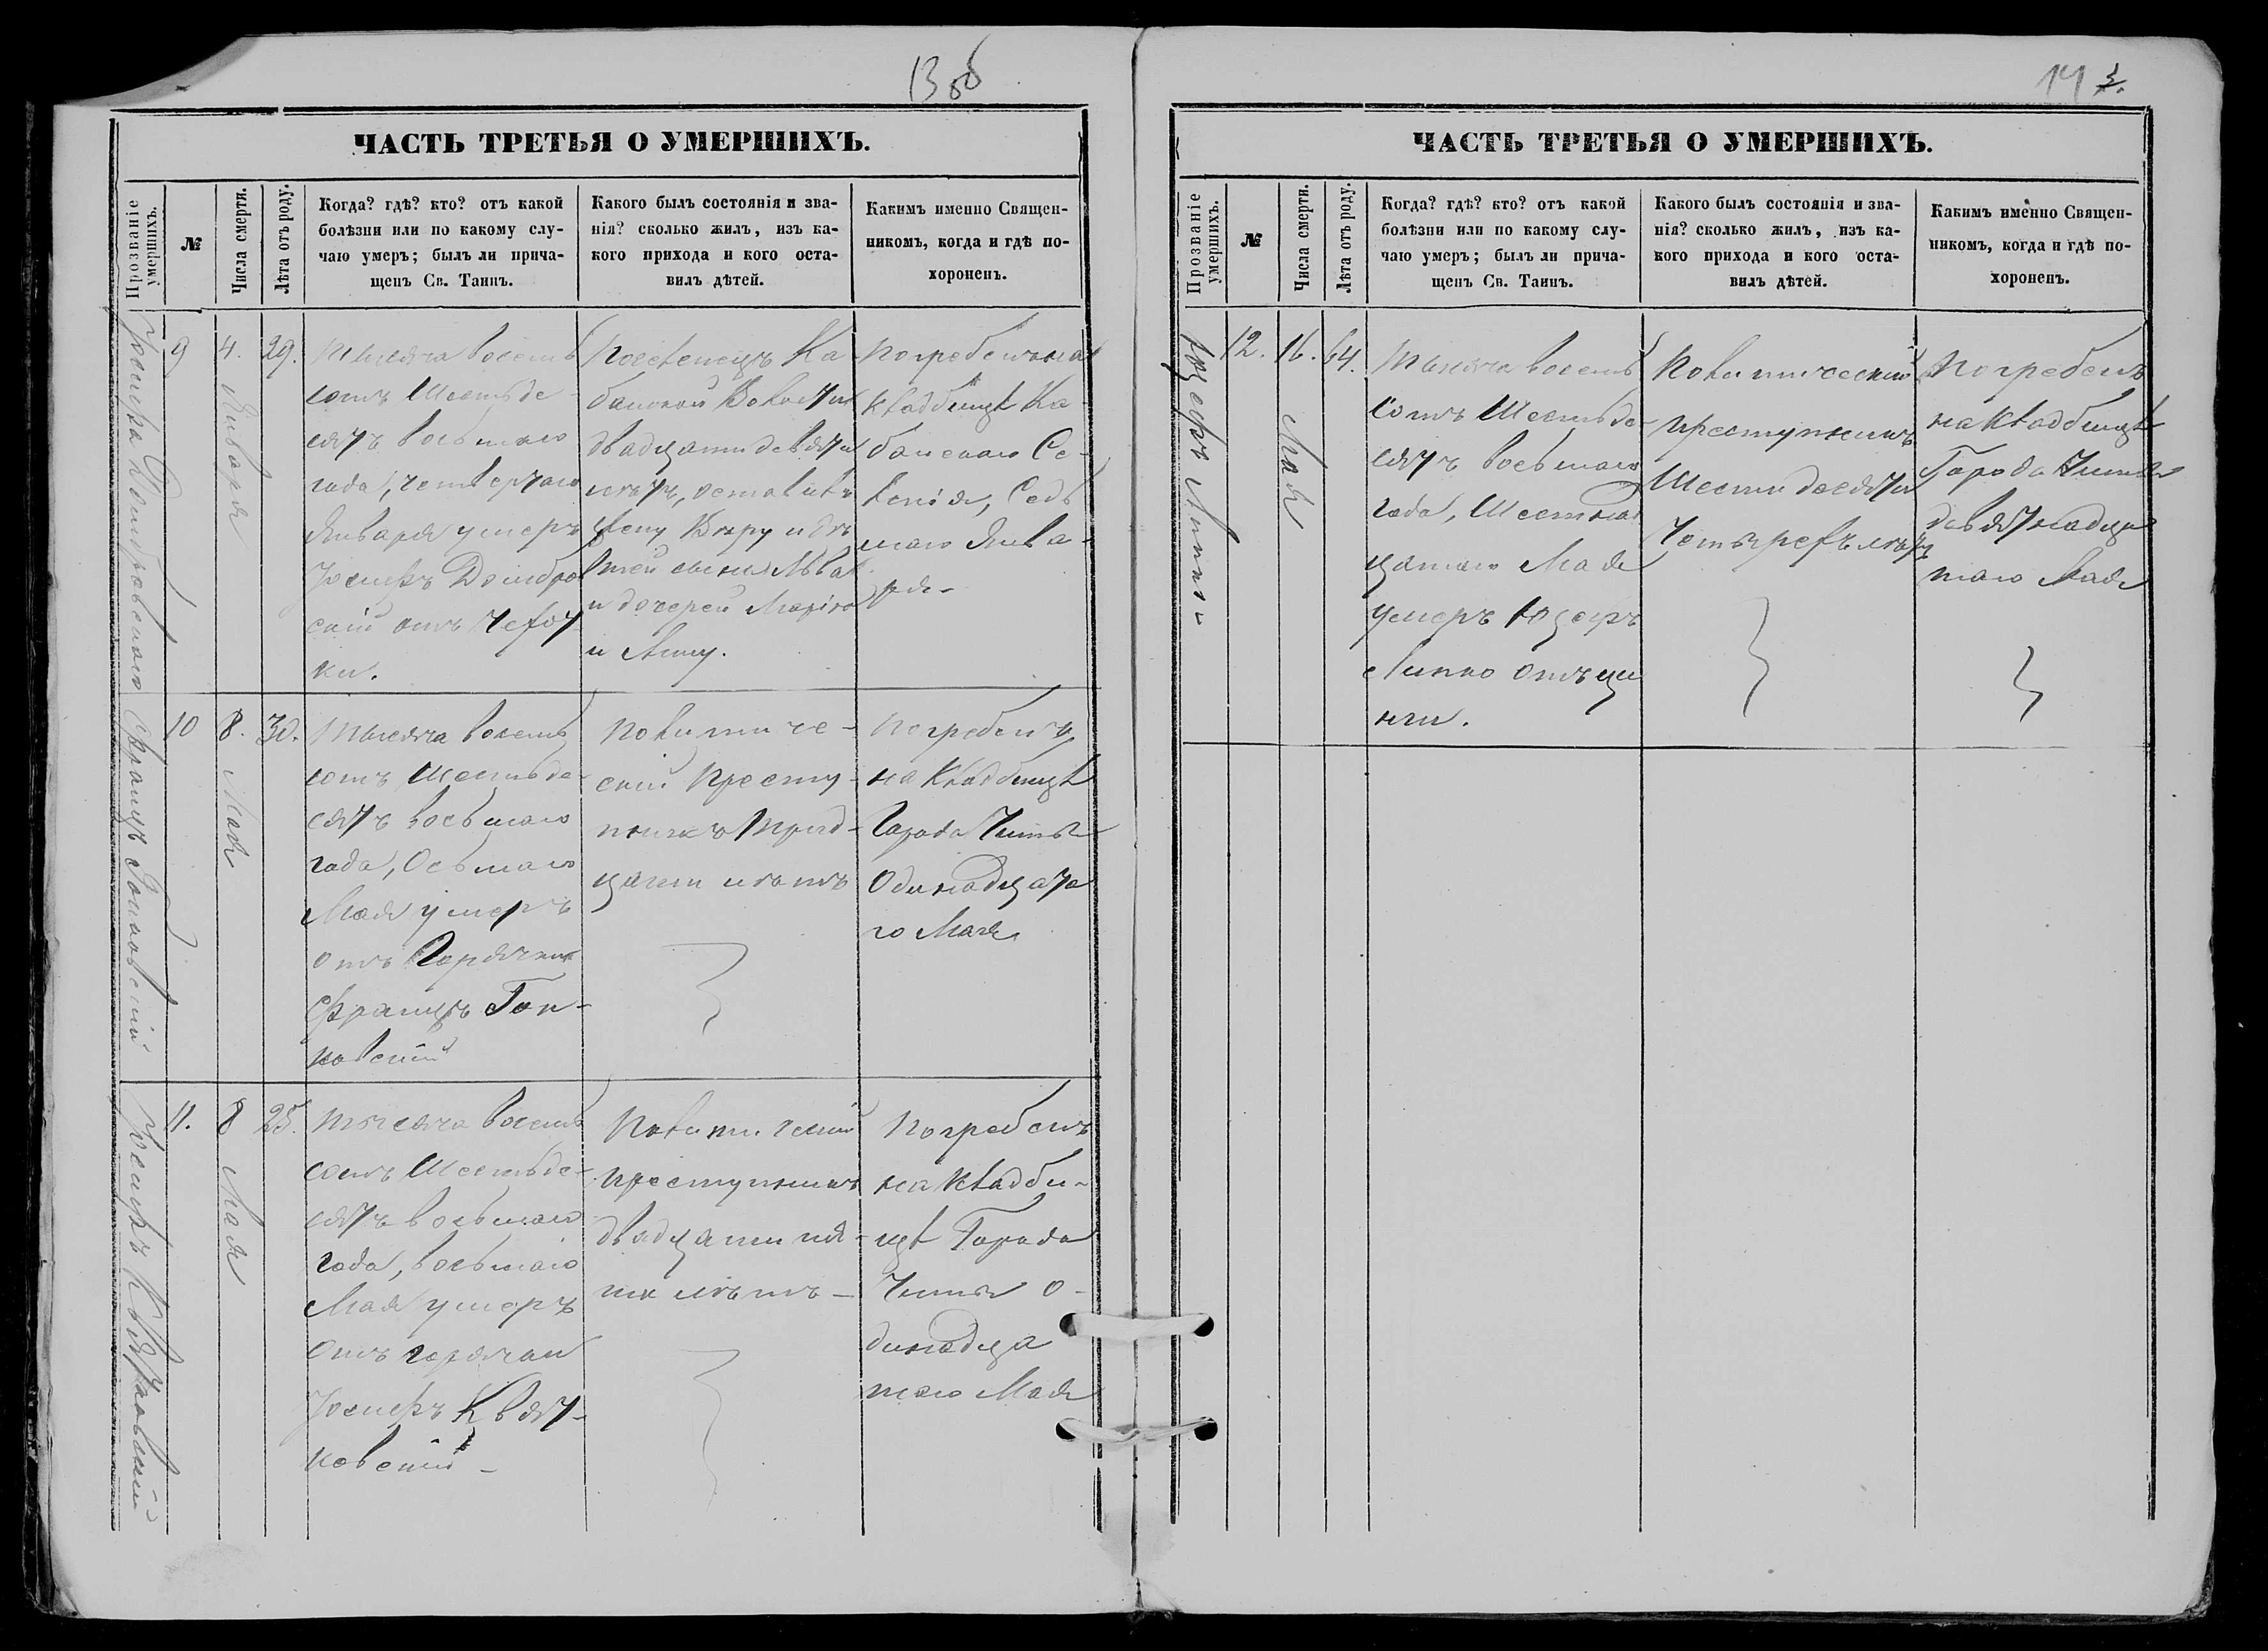 13 об
ЧАСТЬ ТРЕТЬЯ О УМЕРШИХЪ.
Прозваніе умершихъ.
№
Числа смерти.
Лѣта отъ роду.
Когда? гдѣ? кто? отъ какой
болѣзни или по какому слу-
чаю умеръ; былъ ли прича-
щенъ Св. Таинъ.
Какого былъ состоянія и зва-
нія? сколько жилъ, изъ ка-
кого прихода и кого оста-
вилъ дѣтей.
Какимъ именно Священ-
никомъ, когда и гдѣ по-
хороненъ.
9
4.
Января
29.
Тысяча восемь
сотъ Шестьде-
сятъ восьмаго
года, четвертаго
Января умеръ
Іосифъ Домбров
скій отъ Чехот-
ки.
Поселенецъ Ка-
банской Волости
двадцати девяти
лѣтъ, оставивъ
жену Вѣру и дѣ-
тей сына Льва
и дочерей Марію
и Анну.
Погребенъ на
кладбищѣ Ка-
банскаго Се-
ленія, Седь
маго Янва-
ря-
10
8.
Мая
30.
Тысяча восемь
сотъ Шестьде-
сятъ восьмаго
года, Осьмаго
Мая умеръ
отъ Горячки
Францъ Гон-
ковскій
Политиче-
скій Престу-
пникъ трид-
цати лѣтъ
Погребенъ
на Кладбищѣ
Города Читы
Одинадцата
го Мая
11.
8
Мая
25.
Тысяча восемь
сотъ Шестьде-
сятъ восьмаго
года, восьмаго
Мая умеръ
отъ горячки
Іосифъ Квят-
ковскій -
Политическій
преступникъ
двадцати пя-
ти лѣтъ -
Погребенъ
на Кладби-
щѣ Города
Читы о-
динадца
таго Мая
Іосифъ Квятковскій
14
ЧАСТЬ ТРЕТЬЯ О УМЕРШИХЪ.
Прозваніе умершихъ.
№
Числа смерти.
Лѣта отъ роду.
Когда? гдѣ? кто? отъ какой
болѣзни или по какому слу-
чаю умеръ; былъ ли прича-
щенъ Св. Таинъ.
Какого былъ состоянія и зва-
нія? сколько жилъ, изъ ка-
кого прихода и кого оста-
вилъ дѣтей.
Какимъ именно Священ-
никомъ, когда и гдѣ по-
хороненъ.
Юзефъ Липко
12.
16.
Мая
64.
Тысяча восемь
сотъ Шестьде-
сятъ восьмаго
года, Шестнад
цатаго Мая
умеръ Юзефъ
Липко отъ ци
нги.
Политическій
преступникъ
Шестидесяти
Четырехъ лѣтъ
Погребенъ
на Кладбищѣ
Города Читы
девятнадца
таго Мая